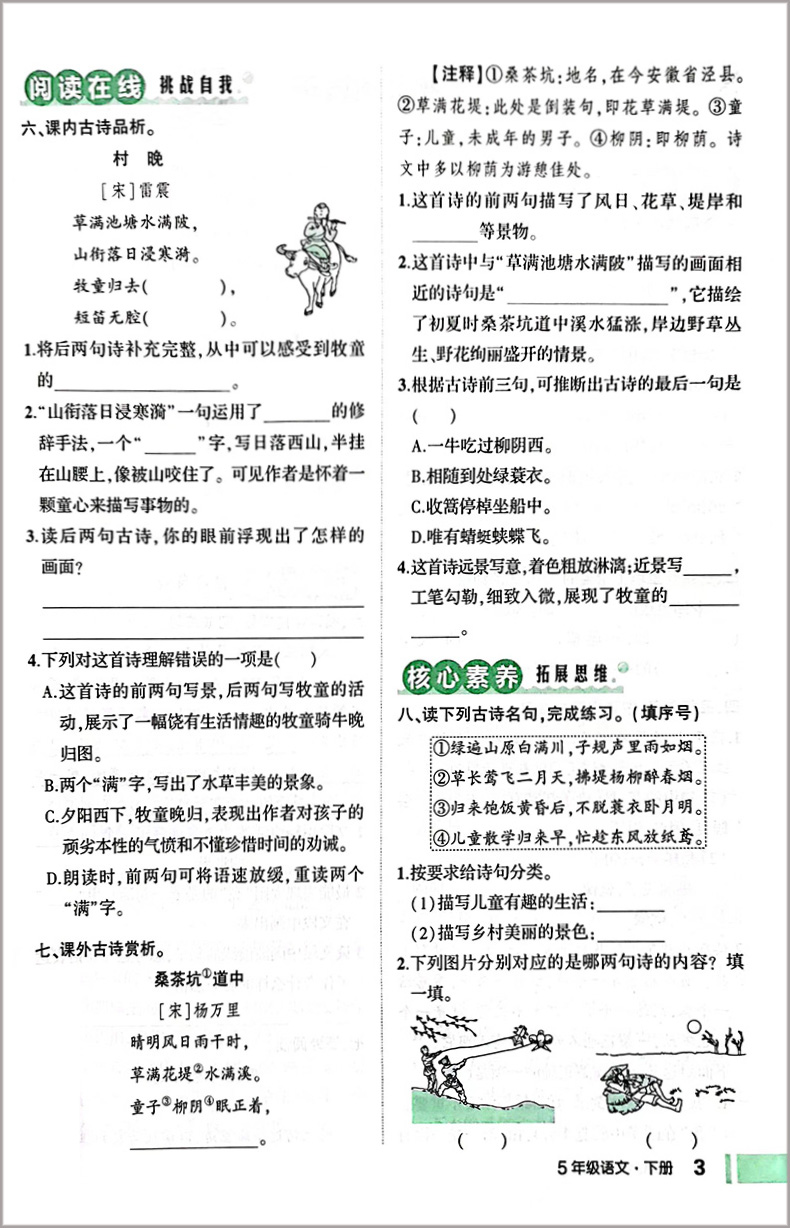 阅读在线 挑战自我
六、课内古诗品析。
村 晚
[宋]雷震
草满池塘水满陂，
山衔落日浸寒漪。
牧童归去(　　　)，
短笛无腔(　　　)。
1.将后两句诗补充完整，从中可以感受到牧童
的____________。
2.“山衔落日浸寒漪”一句运用了______的修
辞手法，一个“____”字，写日落西山，半挂
在山腰上，像被山咬住了。可见作者是怀着一
颗童心来描写事物的。
3.读后两句古诗，你的眼前浮现出了怎样的
画面？
4.下列对这首诗理解错误的一项是(　　)
A.这首诗的前两句写景，后两句写牧童的活
动，展示了一幅饶有生活情趣的牧童骑牛晚
归图。
B.两个“满”字，写出了水草丰美的景象。
C.夕阳西下，牧童晚归，表现出作者对孩子的
顽劣本性的气愤和不懂珍惜时间的劝诫。
D.朗读时，前两句可将语速放缓，重读两个
“满”字。
七、课外古诗赏析。
桑茶坑①道中
[宋]杨万里
晴明风日雨干时，
草满花堤②水满溪。
童子③柳阴④眠正着，
____________。
【注释】①桑茶坑：地名，在今安徽省泾县。
②草满花堤：此处是倒装句，即花草满堤。③童
子：儿童，未成年的男子。④柳阴：即柳荫。诗
文中多以柳荫为游憩佳处。
1.这首诗的前两句描写了风日、花草、堤岸和
______等景物。
2.这首诗中与“草满池塘水满陂”描写的画面相
近的诗句是“____________”，它描绘
了初夏时桑茶坑道中溪水猛涨，岸边野草丛
生、野花绚丽盛开的情景。
3.根据古诗前三句，可推断出古诗的最后一句是
(　　)
A.一牛吃过柳阴西。
B.相随到处绿蓑衣。
C.收篙停棹坐船中。
D.唯有蜻蜓蛱蝶飞。
4.这首诗远景写意，着色粗放淋漓；近景写____，
工笔勾勒，细致入微，展现了牧童的______
____。
核心素养 拓展思维
八、读下列古诗名句，完成练习。(填序号)
①绿遍山原白满川，子规声里雨如烟。
②草长莺飞二月天，拂堤杨柳醉春烟。
③归来饱饭黄昏后，不脱蓑衣卧月明。
④儿童散学归来早，忙趁东风放纸鸢。
1.按要求给诗句分类。
(1)描写儿童有趣的生活：______
(2)描写乡村美丽的景色：______
2.下列图片分别对应的是哪两句诗的内容？填
一填。
(　　) (　　)
5年级语文·下册 3